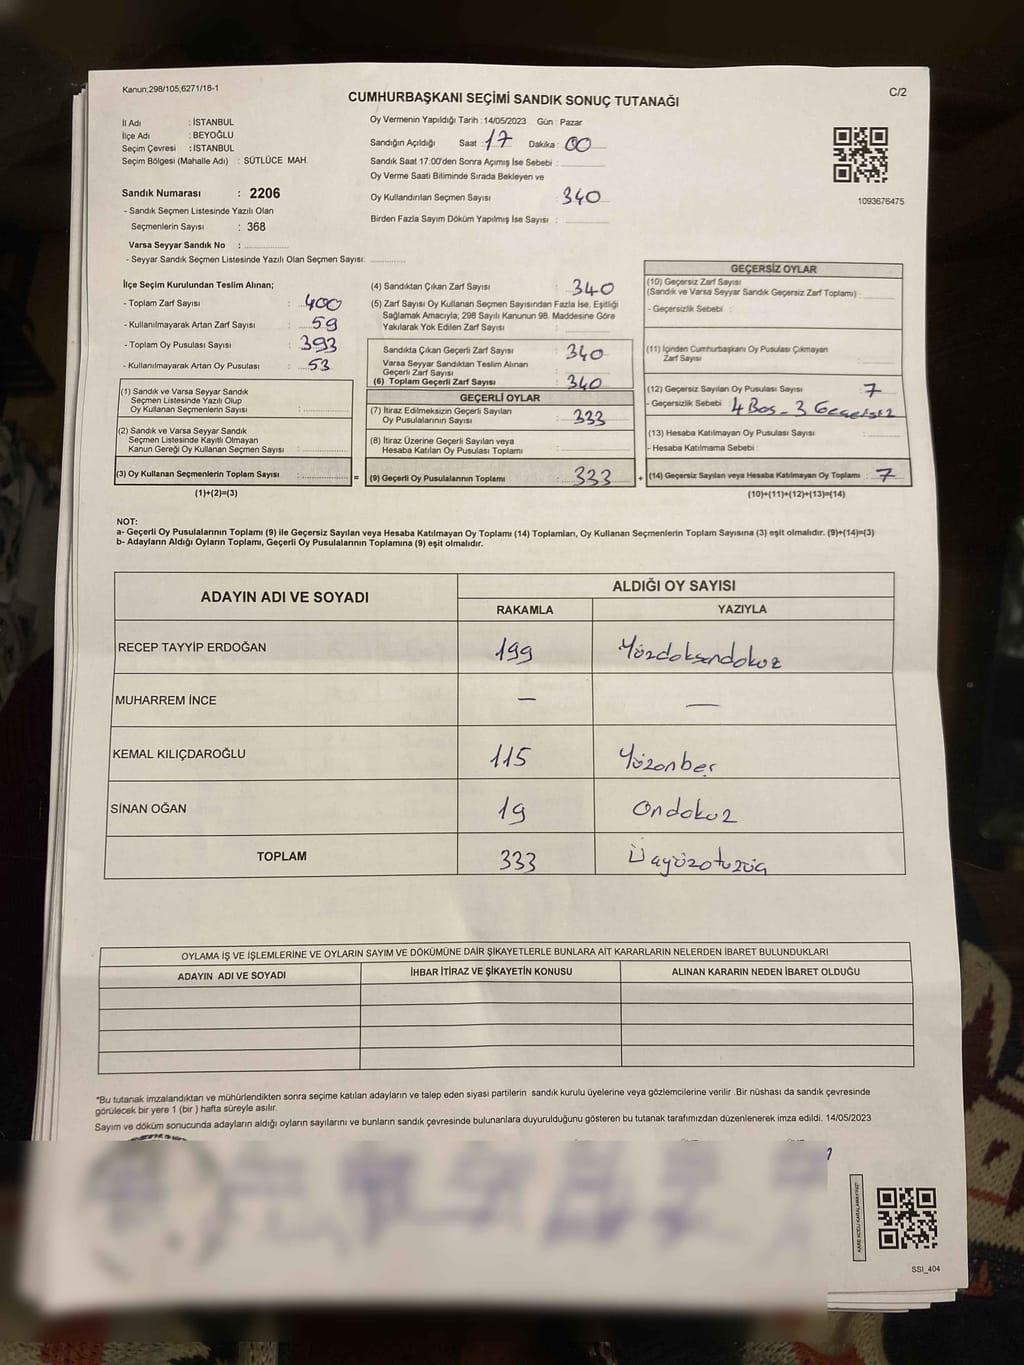 Kanun;298/105,6271/18-1
C/2
CUMHURBAŞKANI SEÇİMİ SANDIK SONUÇ TUTANAĞI
İl Adı : İSTANBUL
İlçe Adı : BEYOĞLU
Seçim Çevresi : İSTANBUL
Seçim Bölgesi (Mahalle Adı) : SÜTLÜCE MAH.
Sandık Numarası : 2206
- Sandık Seçmen Listesinde Yazılı Olan
Seçmenlerin Sayısı : 368
Varsa Seyyar Sandık No :
- Seyyar Sandık Seçmen Listesinde Yazılı Olan Seçmen Sayısı:
Oy Vermenin Yapıldığı Tarih : 14/05/2023 Gün : Pazar
Sandığın Açıldığı Saat : 17 Dakika : 00
Sandık Saat 17:00'den Sonra Açımış İse Sebebi :
Oy Verme Saati Bitiminde Sırada Bekleyen ve
Oy Kullandırılan Seçmen Sayısı : 340
Birden Fazla Sayım Döküm Yapılmış İse Sayısı :
1093676475
İlçe Seçim Kurulundan Teslim Alınan;
- Toplam Zarf Sayısı : 400
- Kullanılmayarak Artan Zarf Sayısı : 59
- Toplam Oy Pusulası Sayısı : 393
- Kullanılmayarak Artan Oy Pusulası : 53
(1) Sandık ve Varsa Seyyar Sandık
Seçmen Listesinde Yazılı Olup
Oy Kullanan Seçmenlerin Sayısı :
(2) Sandık ve Varsa Seyyar Sandık
Seçmen Listesinde Kayıtlı Olmayan
Kanun Gereği Oy Kullanan Seçmen Sayısı :
(3) Oy Kullanan Seçmenlerin Toplam Sayısı :
(1)+(2)=(3)
=
(4) Sandıktan Çıkan Zarf Sayısı : 340
(5) Zarf Sayısı Oy Kullanan Seçmen Sayısından Fazla İse, Eşitliği
Sağlamak Amacıyla; 298 Sayılı Kanunun 98. Maddesine Göre
Yakılarak Yok Edilen Zarf Sayısı :
Sandıkta Çıkan Geçerli Zarf Sayısı : 340
Varsa Seyyar Sandıktan Teslim Alınan
Geçerli Zarf Sayısı :
(6) Toplam Geçerli Zarf Sayısı : 340
GEÇERLİ OYLAR
(7) İtiraz Edilmeksizin Geçerli Sayılan
Oy Pusulalarının Sayısı : 333
(8) İtiraz Üzerine Geçerli Sayılan veya
Hesaba Katılan Oy Pusulası Toplamı :
(9) Geçerli Oy Pusulalarının Toplamı : 333
+
GEÇERSİZ OYLAR
(10) Geçersiz Zarf Sayısı
(Sandık ve Varsa Seyyar Sandık Geçersiz Zarf Toplamı) :
- Geçersizlik Sebebi :
(11) İçinden Cumhurbaşkanı Oy Pusulası Çıkmayan
Zarf Sayısı :
(12) Geçersiz Sayılan Oy Pusulası Sayısı : 7
- Geçersizlik Sebebi : 4 Boş - 3 Geçersiz
(13) Hesaba Katılmayan Oy Pusulası Sayısı :
- Hesaba Katılmama Sebebi :
(14) Geçersiz Sayılan veya Hesaba Katılmayan Oy Toplamı : 7
(10)+(11)+(12)+(13)=(14)
NOT:
a- Geçerli Oy Pusulalarının Toplamı (9) ile Geçersiz Sayılan veya Hesaba Katılmayan Oy Toplamı (14) Toplamları, Oy Kullanan Seçmenlerin Toplam Sayısına (3) eşit olmalıdır. (9)+(14)=(3)
b- Adayların Aldığı Oyların Toplamı, Geçerli Oy Pusulalarının Toplamına (9) eşit olmalıdır.
ADAYIN ADI VE SOYADI
ALDIĞI OY SAYISI
RAKAMLA YAZIYLA
RECEP TAYYİP ERDOĞAN 199 Yüzdoksandokuz
MUHARREM İNCE — —
KEMAL KILIÇDAROĞLU 115 Yüzonbeş
SİNAN OĞAN 19 Ondokuz
TOPLAM 333 Üçyüzotuzüç
OYLAMA İŞ VE İŞLEMLERİNE VE OYLARIN SAYIM VE DÖKÜMÜNE DAİR ŞİKAYETLERLE BUNLARA AİT KARARLARIN NELERDEN İBARET BULUNDUKLARI
ADAYIN ADI VE SOYADI İHBAR İTİRAZ VE ŞİKAYETİN KONUSU ALINAN KARARIN NEDEN İBARET OLDUĞU
*Bu tutanak imzalandıktan ve mühürlendikten sonra seçime katılan adayların ve talep eden siyasi partilerin sandık kurulu üyelerine veya gözlemcilerine verilir .Bir nüshası da sandık çevresinde
görülecek bir yere 1 (bir ) hafta süreyle asılır.
Sayım ve döküm sonucunda adayların aldığı oyların sayılarını ve bunların sandık çevresinde bulunanlara duyurulduğunu gösteren bu tutanak tarafımızdan düzenlenerek imza edildi. 14/05/2023
SSI_404